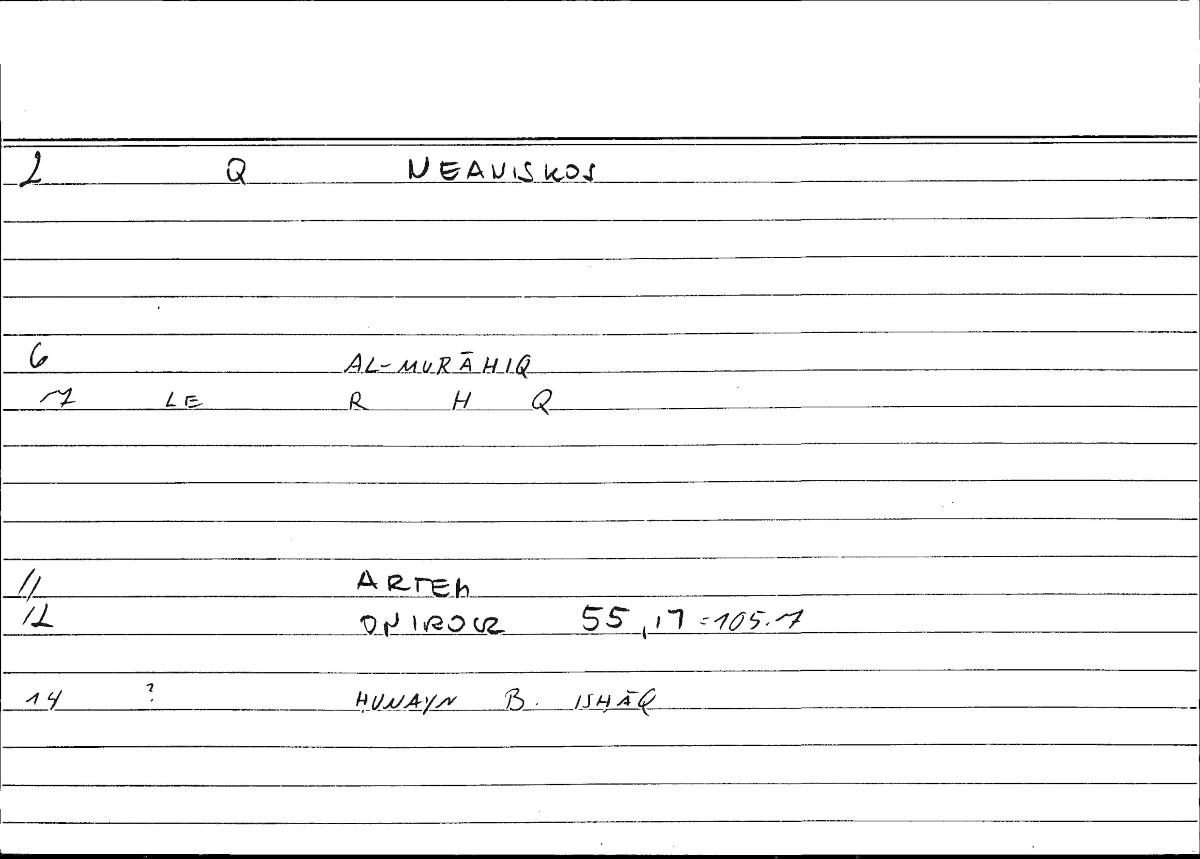 2 Q NEAVISKOS
6 AL-MURĀHIQ
7 LE R H Q
11 ARTEM
12 ONIROCR 55,17=105.7
14 ? ḤUNAYN B. ISḤĀQ